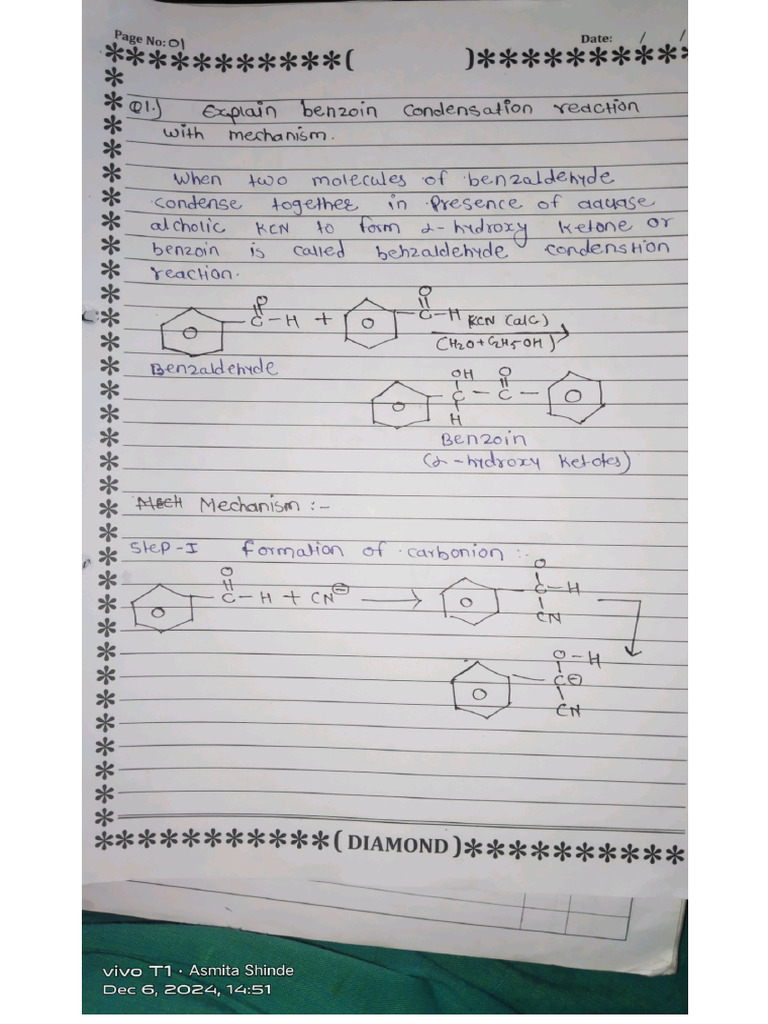 Page No: 01
Date: / /
Q1.) Explain benzoin condensation reaction
with mechanism.
When two molecules of benzaldehyde
condense together in presence of aquase
alcholic KCN to form α-hydroxy ketone or
benzoin is called behzaldehyde condenstion
reaction.
O
C-H + O C-H KCN (alc)
(H2O+C2H5OH)
Benzaldehyde
OH O
C - C -
H
Benzoin
(α-hydroxy ketotes)
Mechanism :-
Step-I formation of carbonion :-
O
C-H + CN⊖
O
C-H
CN
O-H
C⊖
CN
(DIAMOND)
vivo T1 · Asmita Shinde
Dec 6, 2024, 14:51